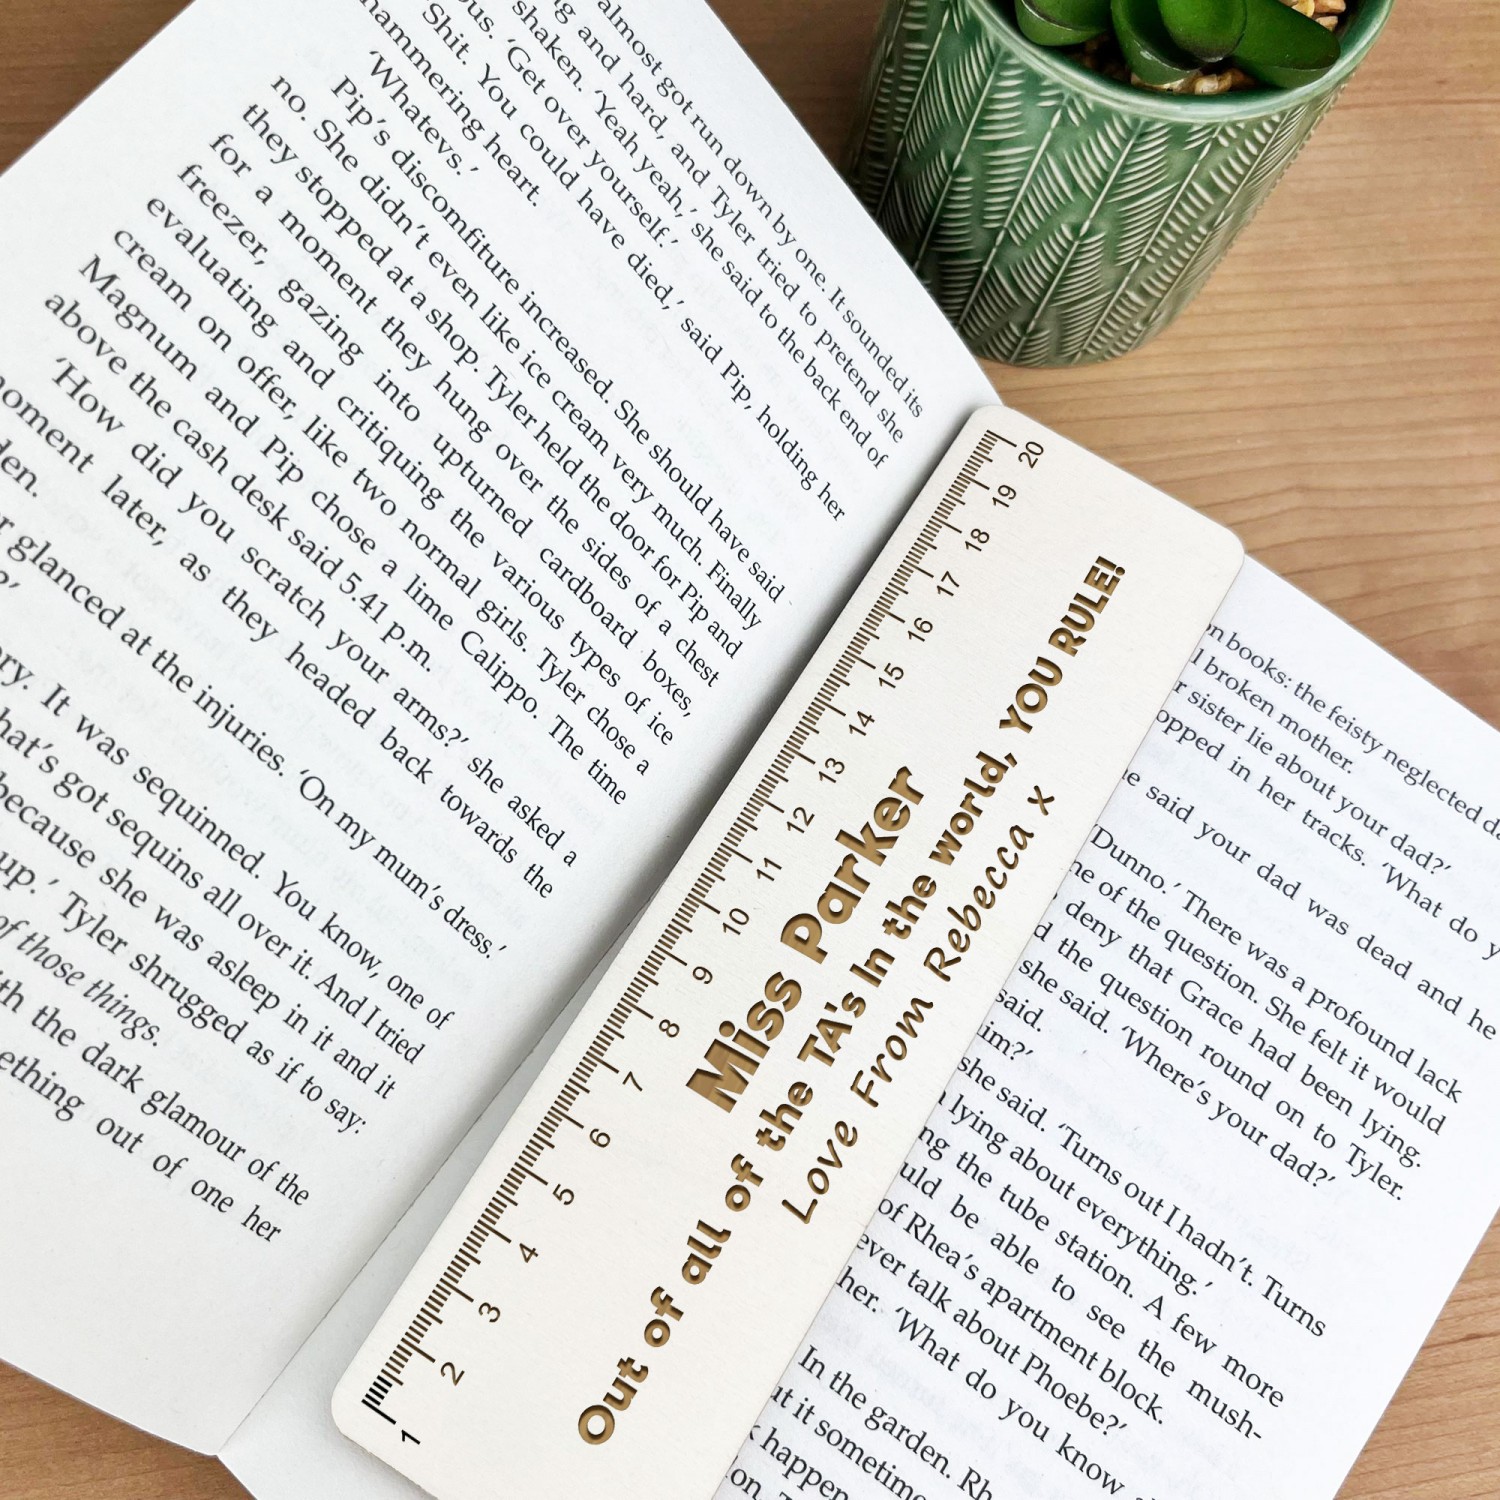 almost got run down by one. It sounded its
ng and hard, and Tyler tried to pretend she
shaken. 'Yeah yeah,' she said to the back end of
ous. 'Get over yourself.'
'Shit. You could have died,' said Pip, holding her
hammering heart.
'Whatevs.'
Pip's discomfiture increased. She should have said
no. She didn't even like ice cream very much. Finally
they stopped at a shop. Tyler held the door for Pip and
for a moment they hung over the sides of a chest
freezer, gazing into upturned cardboard boxes,
evaluating and critiquing the various types of ice
cream on offer, like two normal girls. Tyler chose a
Magnum and Pip chose a lime Calippo. The time
above the cash desk said 5.41 p.m.
'How did you scratch your arms?' she asked a
moment later, as they headed back towards the
den.
r glanced at the injuries. 'On my mum's dress.'
?'
ory. It was sequinned. You know, one of
hat's got sequins all over it. And I tried
because she was asleep in it and it
up.' Tyler shrugged as if to say:
of those things.
th the dark glamour of the
ething out of one her
1 2 3 4 5 6 7 8 9 10 11 12 13 14 15 16 17 18 19 20
Miss Parker
Out of all of the TA's In the world, YOU RULE!
Love From Rebecca x
en books: the feisty neglected da
l broken mother.
r sister lie about your dad?'
opped in her tracks. 'What do y
e said your dad was dead and he
'Dunno.' There was a profound lack
ne of the question. She felt it would
, deny that Grace had been lying.
d the question round on to Tyler.
she said. 'Where's your dad?'
said.
im?'
she said. 'Turns out I hadn't. Turns
lying about everything.'
ng the tube station. A few more
uld be able to see the mush-
of Rhea's apartment block.
ever talk about Phoebe?'
her. 'What do you know
In the garden. Rh
ut it sometime
happen
on.